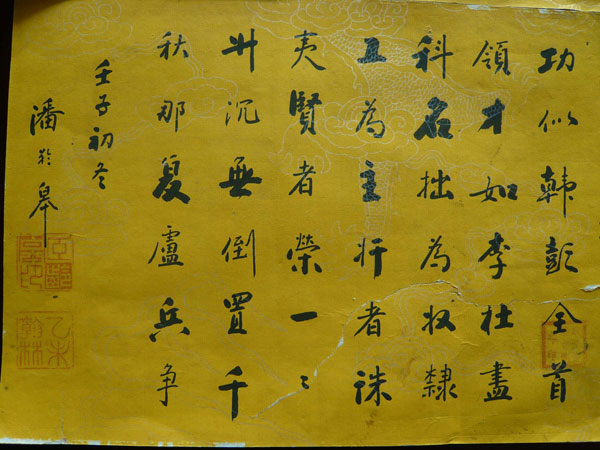 功似韓彭全首
領才如李杜盡
科名拙為奴隸
工為主奸者誅
夷賢者榮一〻
升沉無倒置千
秋那复慮兵爭
壬子初冬
潘齡皋
乙未翰林